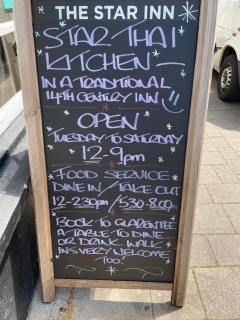 THE STAR INN
STAR THAI
KITCHEN
IN A TRADITIONAL
14TH CENTURY INN
OPEN
TUESDAY TO SATURDAY
12-9PM
FOOD SERVICE
DINE IN / TAKE OUT
12-2:30PM / 5:30-8:00PM
BOOK TO GUARENTEE
A TABLE TO DINE
OR DRINK. WALK
INS VERY WELCOME
TOO!